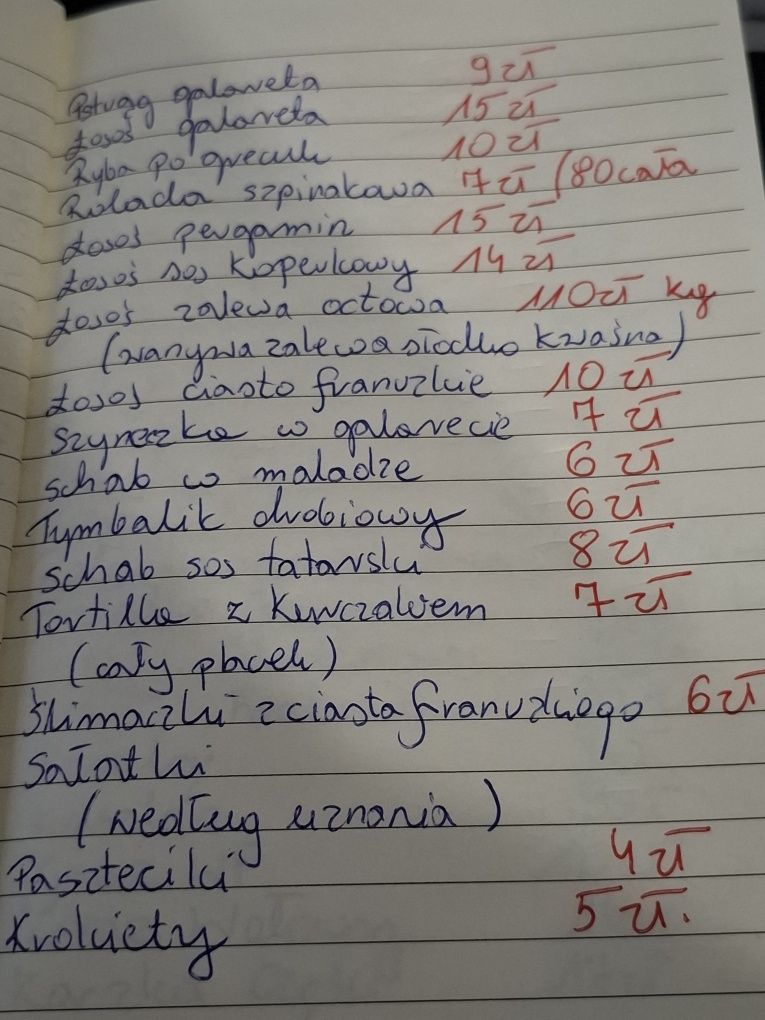 Pstrąg galareta 9 zł
Łosoś galareta 15 zł
Ryba po grecku 10 zł
Rolada szpinakowa 7 zł (80 cała
Łosoś pergamin 15 zł
Łosoś sos koperkowy 14 zł
Łosoś zalewa octowa 110 zł kg
(warzywa zalewa słodko kwaśna)
Łosoś ciasto francuzkie 10 zł
Szyneczka w galarecie 7 zł
schab w maladze 6 zł
Tymbalik drobiowy 6 zł
schab sos tatarski 8 zł
Tortilla z kurczakiem 7 zł
(cały placek)
Ślimaczki z ciasta francuzkiego 6 zł
Sałatki
(według uznania)
Paszteciki 4 zł
Krokiety 5 zł.